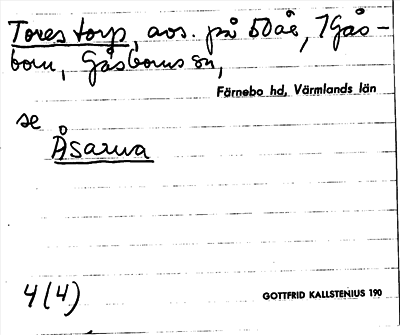 Torestorp, avs. på 50 åE, 7 Gås-
born, Gåsborns sn,
Färnebo hd, Värmlands län
se
Åsarna
4(4)
GOTTFRID KALLSTENIUS 190